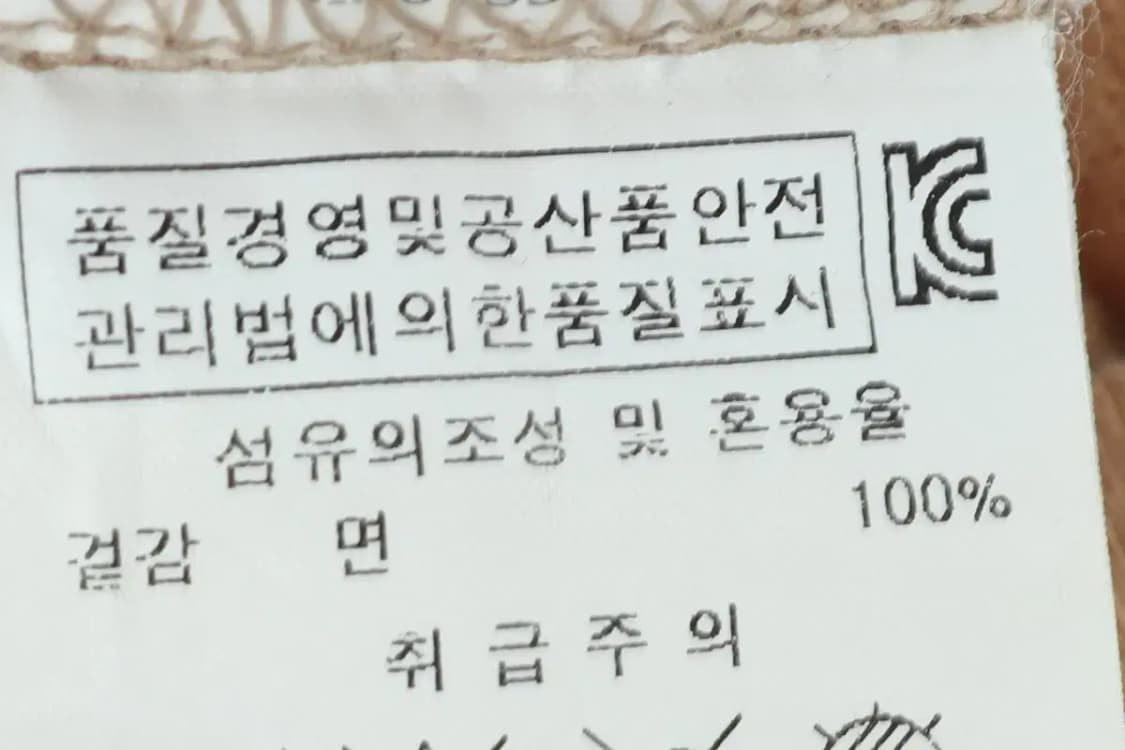 품질경영및공산품안전
관리법에의한품질표시
KC
섬유의조성 및 혼용율
겉감 면 100%
취급주의